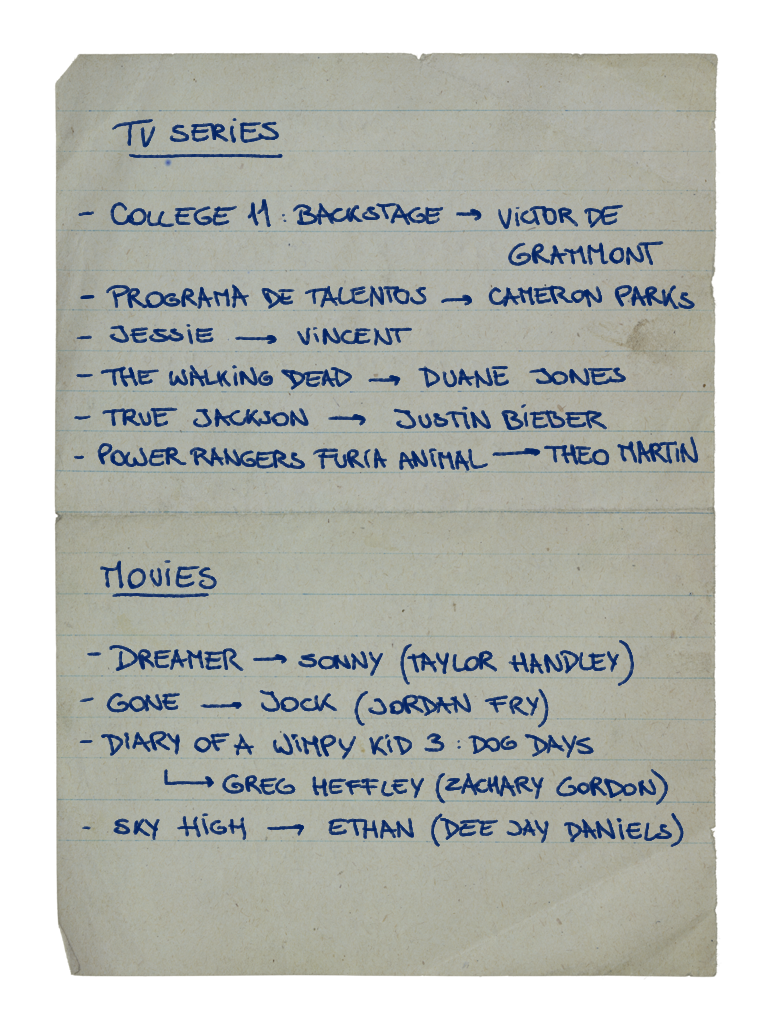 TV SERIES
- COLLEGE 11: BACKSTAGE → VICTOR DE
GRAMMONT
- PROGRAMA DE TALENTOS → CAMERON PARKS
- JESSIE → VINCENT
- THE WALKING DEAD → DUANE JONES
- TRUE JACKSON → JUSTIN BIEBER
- POWER RANGERS FURIA ANIMAL → THEO MARTIN
MOVIES
- DREAMER → SONNY (TAYLOR HANDLEY)
- GONE → JOCK (JORDAN FRY)
- DIARY OF A WIMPY KID 3: DOG DAYS
↳ GREG HEFFLEY (ZACHARY GORDON)
- SKY HIGH → ETHAN (DEE JAY DANIELS)